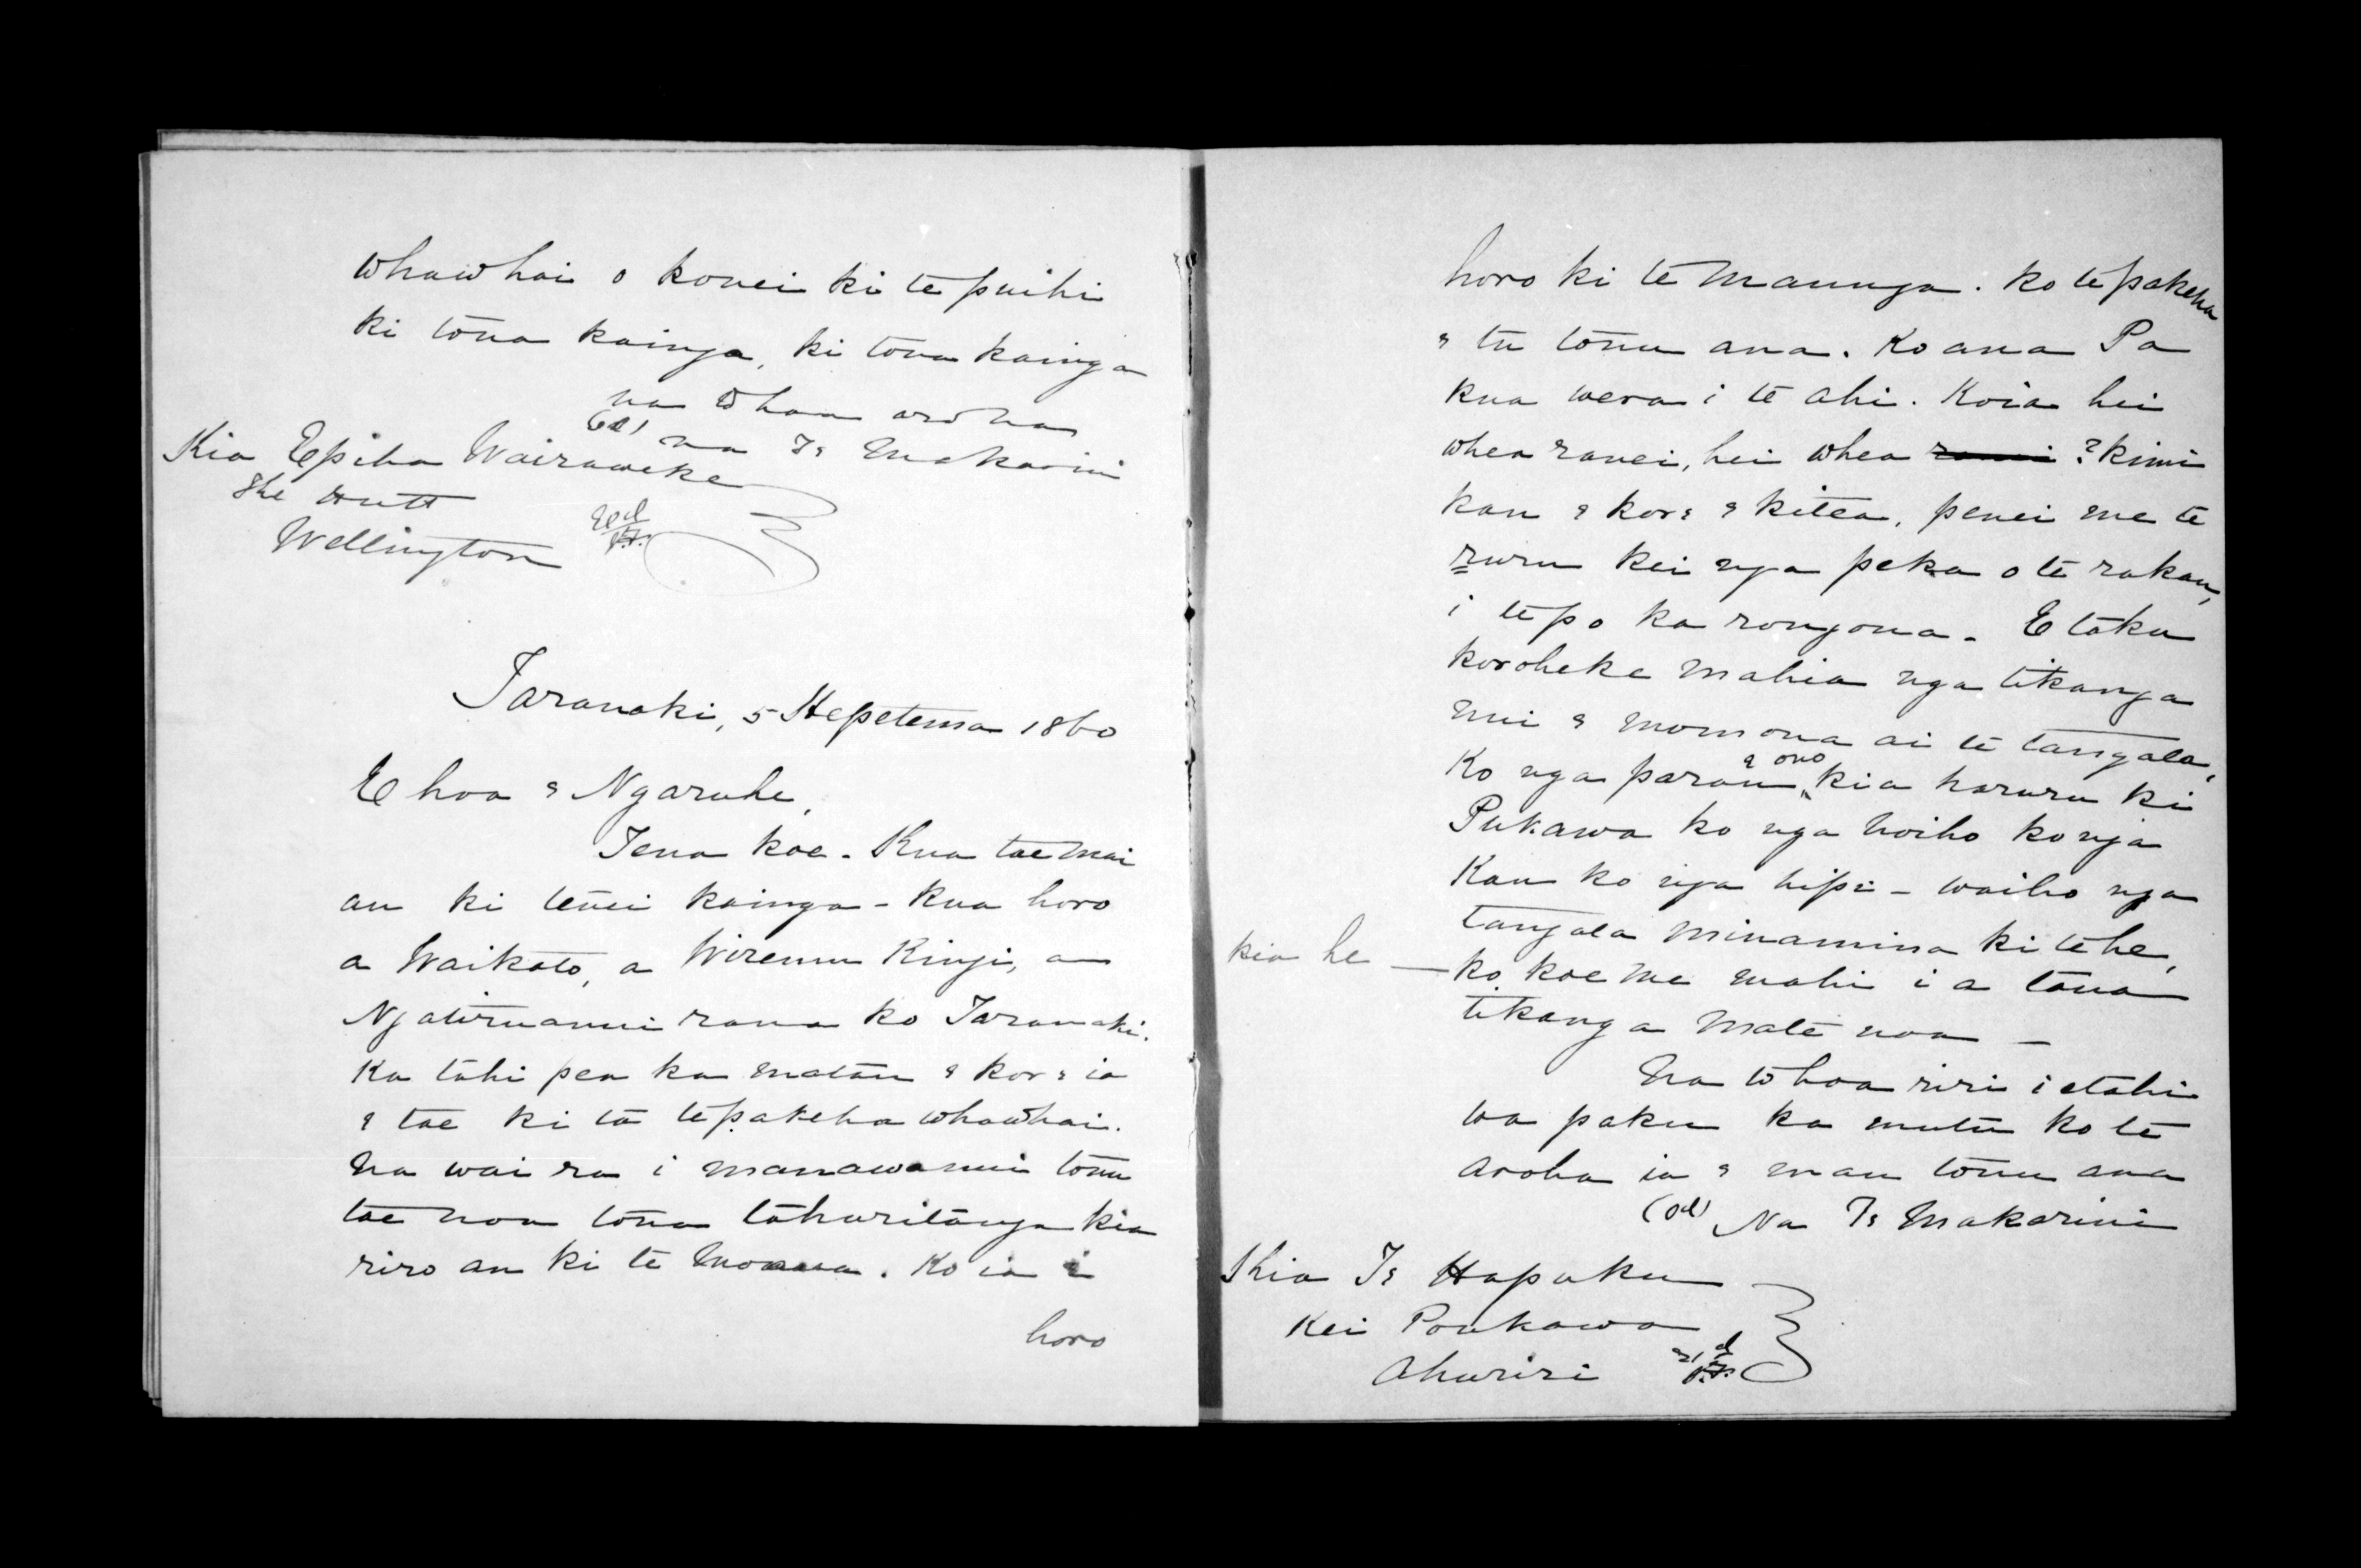 whawhai o konei ki te puihi
ki tona kainga, ki tona kainga
na to hoa aroha
(sd) na Te Makarini
Kia Epiha Wairaweke
The Hutt
Wellington
Taranaki, 5 Hepetema 1860
E hoa e Ngaruhe,
Tena koe. Kua tae mai
au ki tenei kainga - kua horo
a Waikato, a Wiremu Kingi, a
Ngatiruanui raua ko Taranaki.
Ka tahi pea ka matau e kore ia
e tae ki ta te pakeha whawhai.
Na wai ra i manawanui tonu
tae noa tona tahuritanga kia
riro au ki te moana. Ko ia i
horo
horo ki te maunga. ko te pakeha
e tu tonu ana. Ko ana Pa
kua wera i te ahi. Koia hei
whea ranei, hei whea ranei? kimi
kau e kore e kitea, penei me te
ruru kei nga peka o te rakau,
i te po ka rongona. E taku
koroheke mahia nga tikanga
nui e momona ai te tangata,
Ko nga parau e ono kia haruru ki
Pukawa ko nga hoiho ko nga
Kau ko nga hipi - waiho nga
tangata minamina ki te he,
kia he — ko koe me mahi i a tana
tikanga mate noa —
Na to hoa riri i etahi
wa paku ka mutu ko te
aroha ia e mau tonu ana
(sd) Na Te Makarini
Kia Te Hapuku
Kei Poukawa
Ahuriri